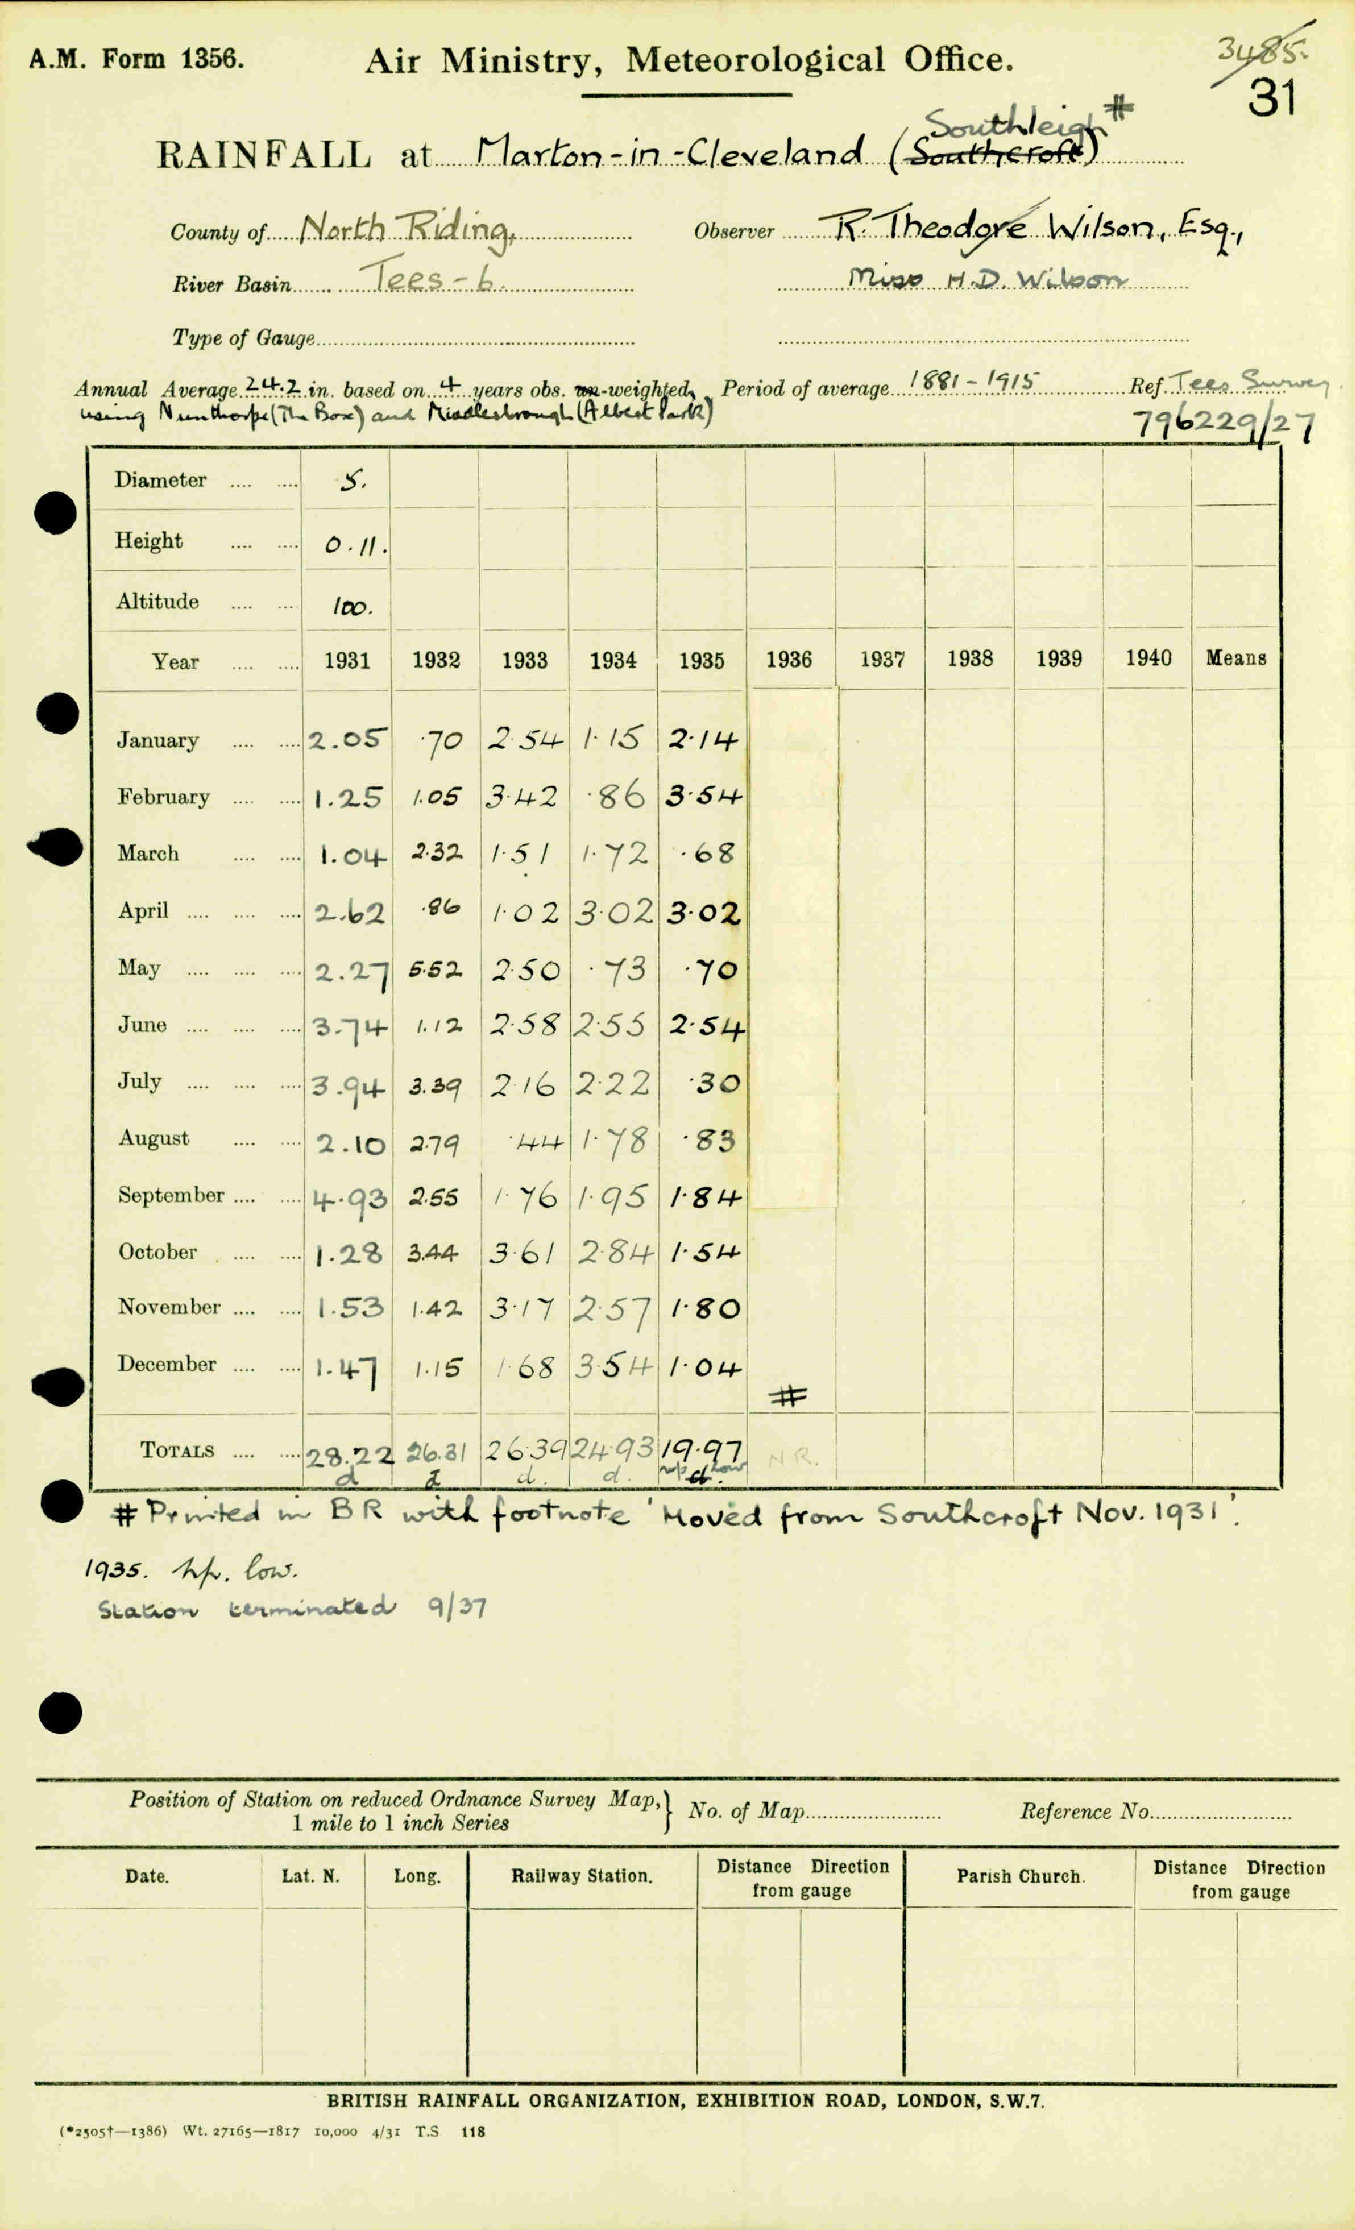 A.M. Form 1356. Air Ministry, Meteorological Office. 3485.
31
Southleigh #
RAINFALL at Marton-in-Cleveland (Southcroft)
County of North Riding. Observer R. Theodore Wilson, Esq.,
River Basin Tees-6. Miss H.D. Wilson
Type of Gauge
Annual Average 24.2 in. based on 4 years obs. un-weighted, Period of average 1881-1915 Ref. Tees Survey
using Nunthorpe (The Box) and Middlesbrough (Albert Park) 796229/27
Diameter .... .... 5.
Height .... .... 0.11.
Altitude .... .... 100.
Year .... .... 1931 1932 1933 1934 1935 1936 1937 1938 1939 1940 Means
January .... .... 2.05 .70 2.54 1.15 2.14
February .... .... 1.25 1.05 3.42 .86 3.54
March .... .... 1.04 2.32 1.51 1.72 .68
April .... .... .... 2.62 .86 1.02 3.02 3.02
May .... .... .... 2.27 5.52 2.50 .73 .70
June .... .... .... 3.74 1.12 2.58 2.55 2.54
July .... .... .... 3.94 3.39 2.16 2.22 .30
August .... .... 2.10 2.79 .44 1.78 .83
September .... .... 4.93 2.55 1.76 1.95 1.84
October .... .... 1.28 3.44 3.61 2.84 1.54
November .... .... 1.53 1.42 3.17 2.57 1.80
December .... .... 1.47 1.15 1.68 3.54 1.04
#
TOTALS .... .... 28.22 26.31 26.39 24.93 19.97 N.R.
d d d. d. d. low
# Printed in BR with footnote 'Moved from Southcroft Nov. 1931'.
1935. hp. low.
Station terminated 9/37
Position of Station on reduced Ordnance Survey Map, } No. of Map Reference No.
1 mile to 1 inch Series
Date. Lat. N. Long. Railway Station. Distance Direction from gauge Parish Church. Distance Direction from gauge
BRITISH RAINFALL ORGANIZATION, EXHIBITION ROAD, LONDON, S.W.7.
(*2505†—1386) Wt. 27165—1817 10,000 4/31 T.S 118